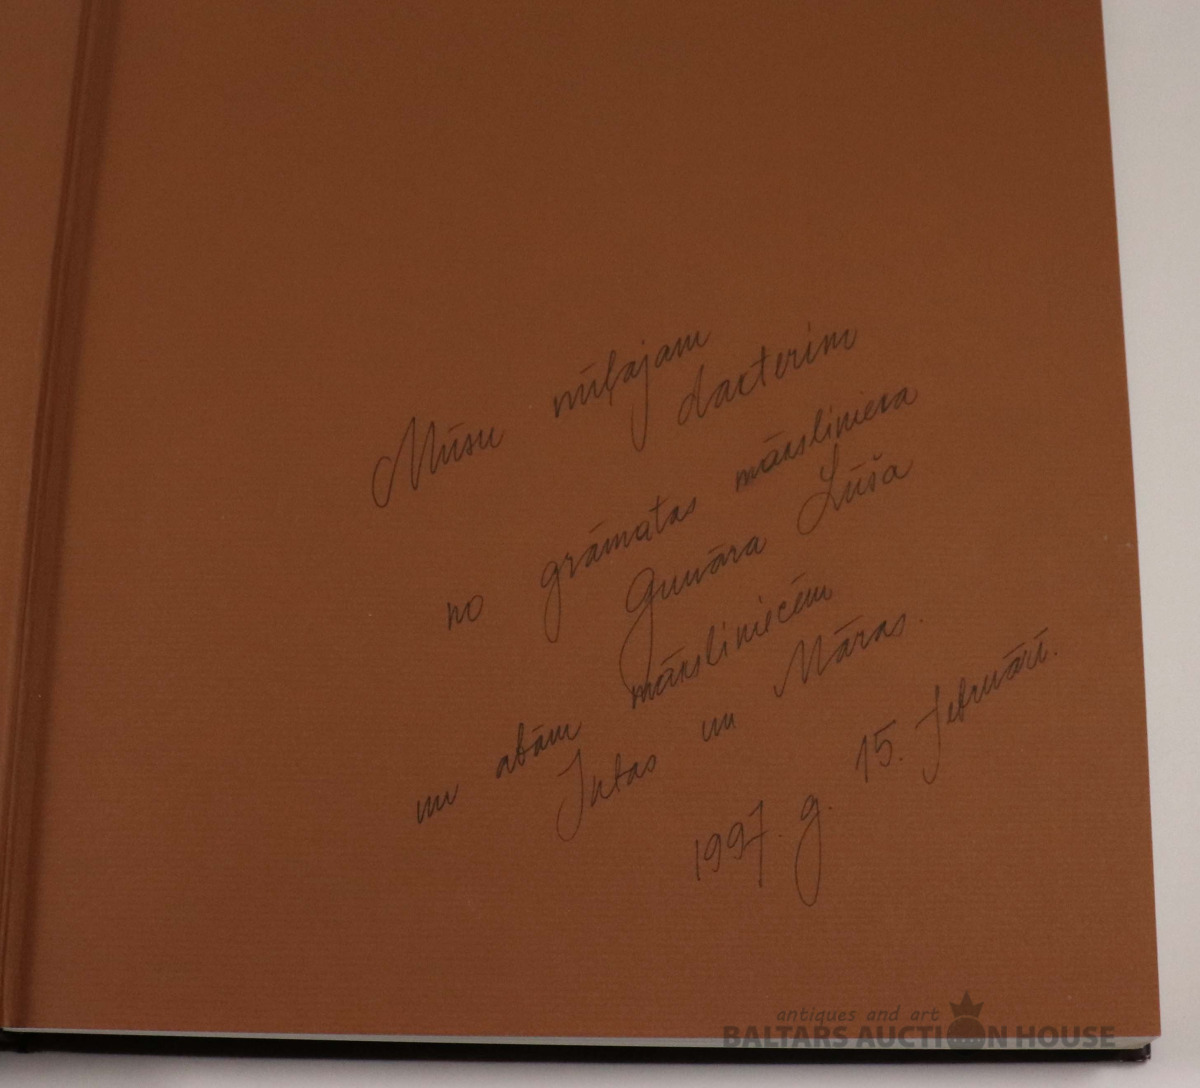 Mūsu mīļajam
dakterim
no grāmatas mākslinieka
Gunāra Lūša
un abām māksliniecēm
Intas un Māras.
1997. g. 15. februārī.
antiques and art
BALTARS AUCTION HOUSE